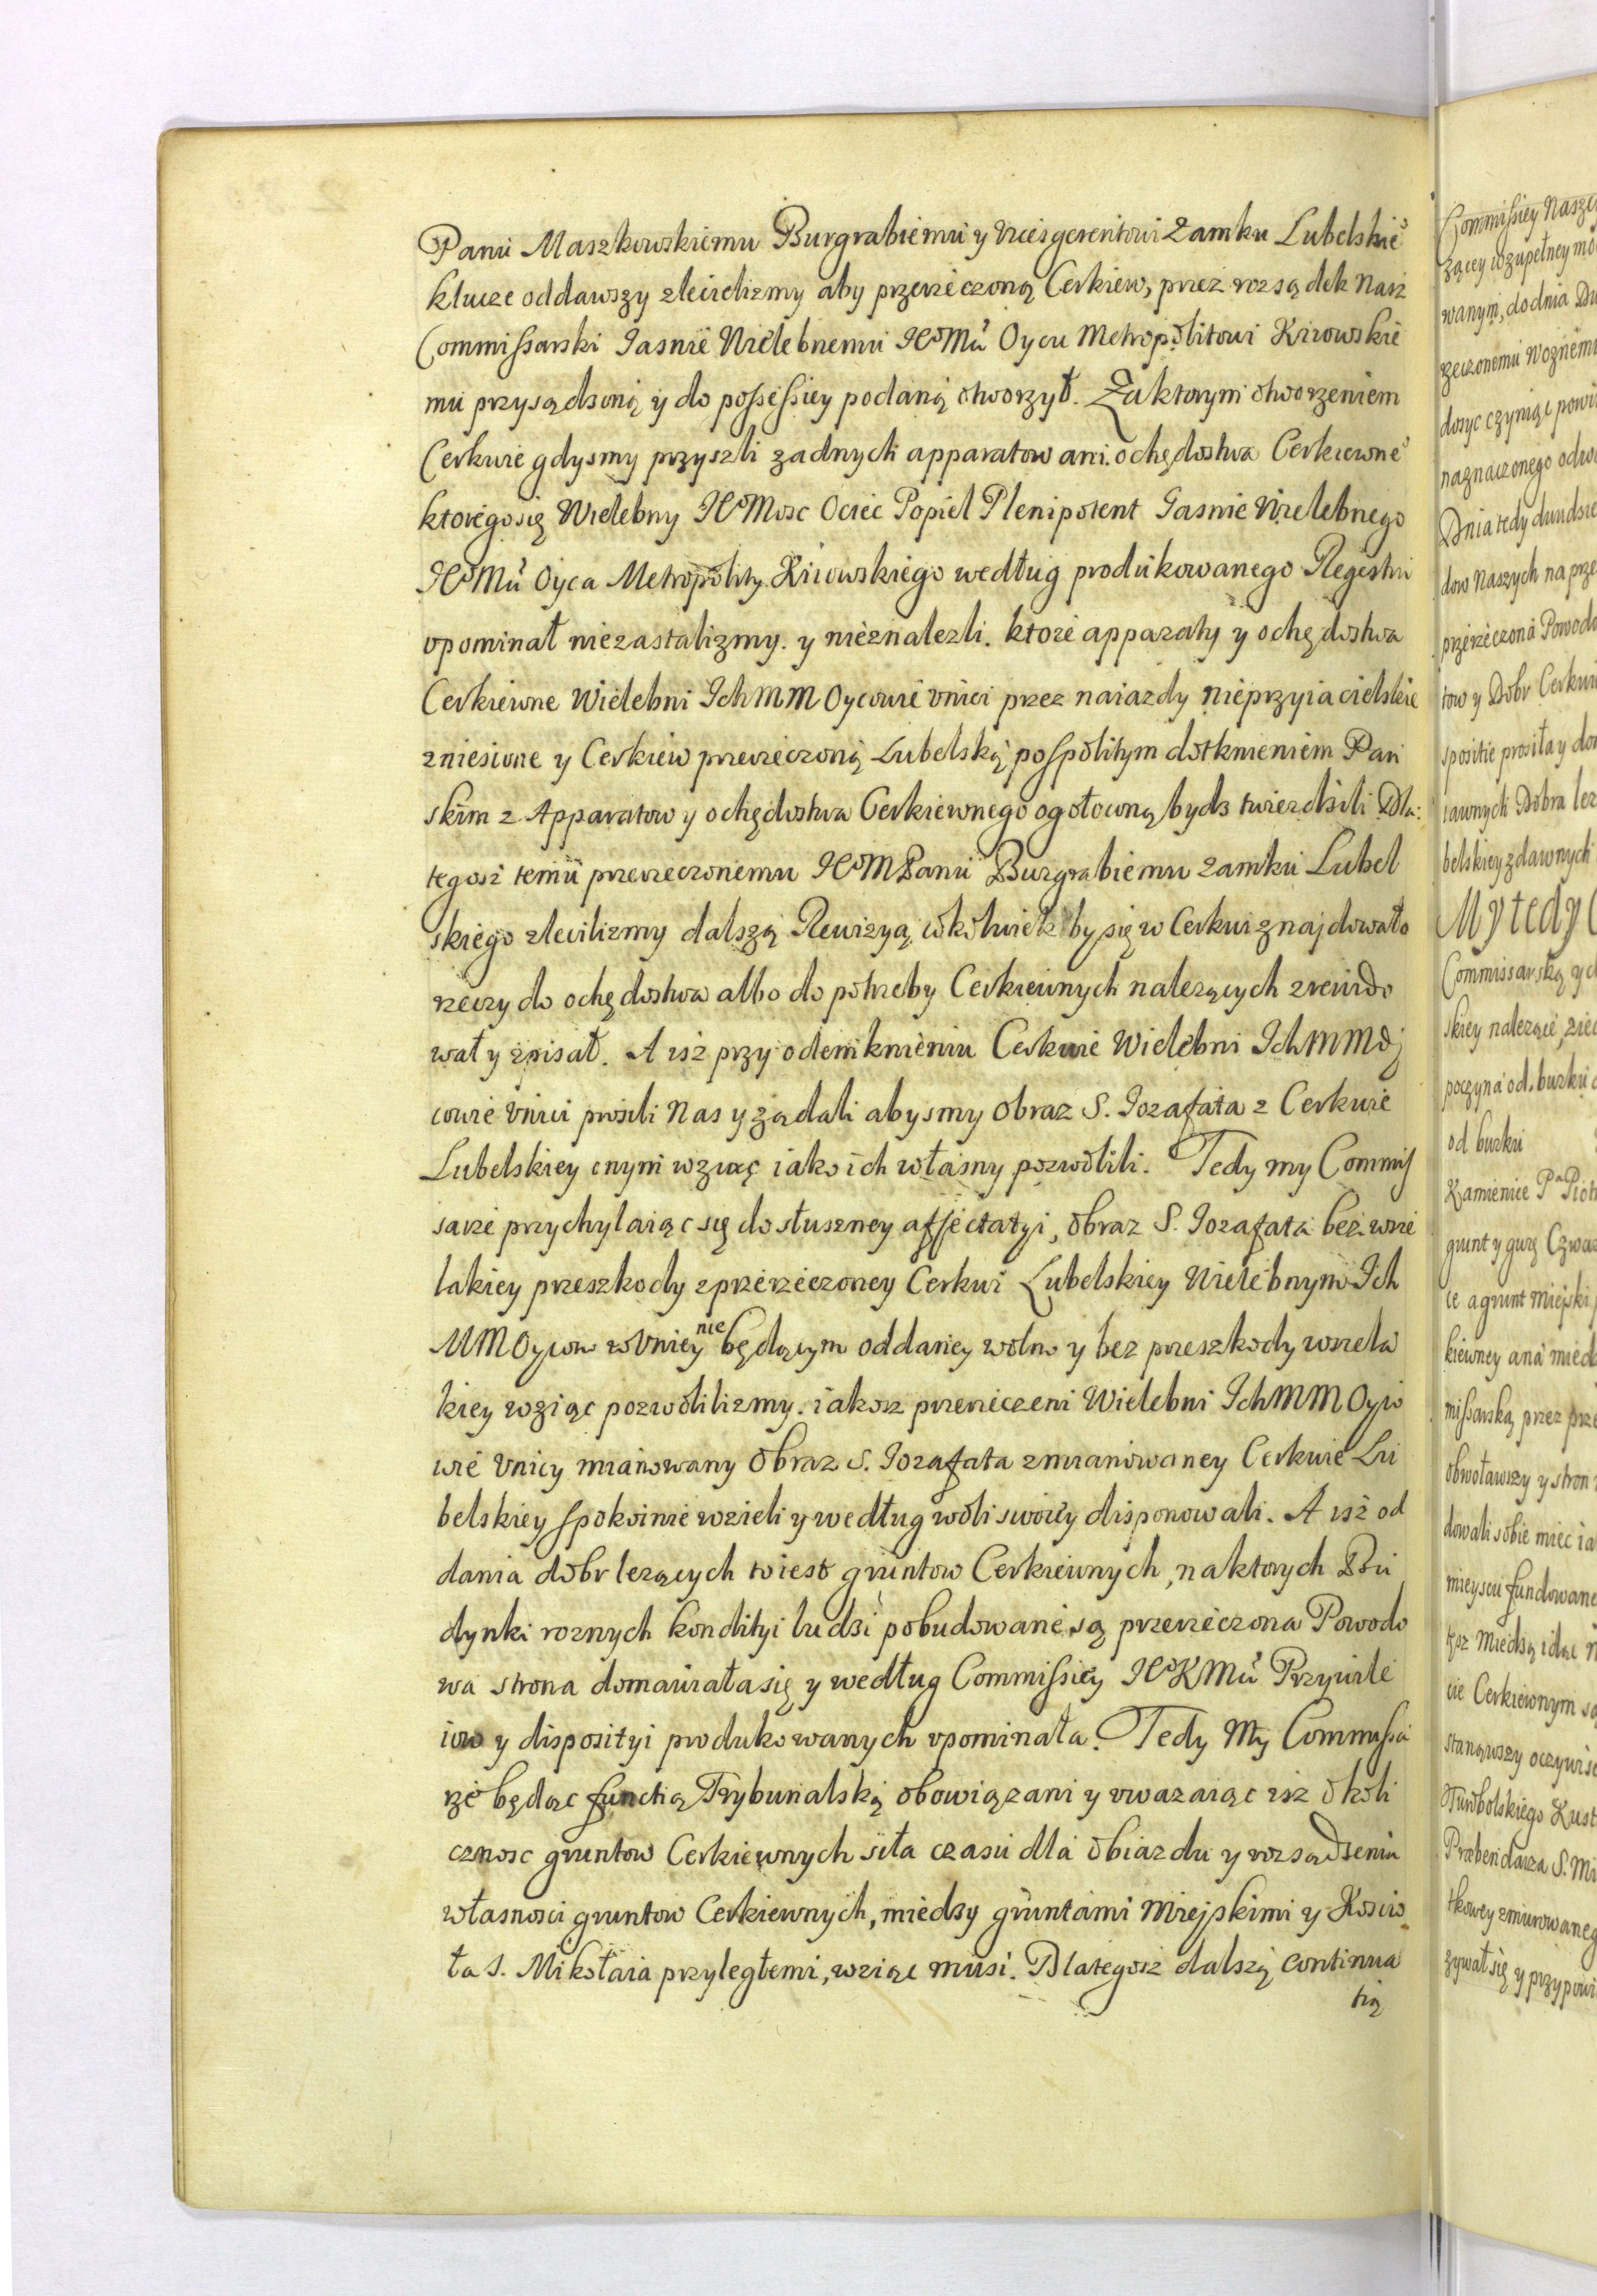 Panu Maszkowskiemu Burgrabiemu y Vicesgerentowi Zamku Lubelskie°
klucze oddawszy zlecielizmy aby przerzeczoną Cerkiew, przez rozsądek Nasz
Commissarski Jasnie Wielebnemu Je°Mu Oycu Metropolitowi Kiiowskie
mu przysądzoną y do possessiey podaną otworzył. Za ktorym otworzeniem
Cerkwie gdysmy przyszli zadnych apparatow ani ochędostwa Cerkiewne°
ktoregosię Wielebny Je°Mosc Ociec Popiel Plenipotent Jasnie Wielebnego
Je°Mu Oyca Metropolity Kiiowskiego według produkowanego Regestru
vpominał niezastalizmy. y nieznalezli. ktore apparaty y ochędostwa
Cerkiewne Wielebni Ich MM Oycowie vnici przez naiazdy nieprzyiacielskie
zniesione y Cerkiew przerzeczoną Lubelską pospolitym dotknieniem Pań
skim z Apparatow y ochędostwa Cerkiewnego ogołoconą bydz twierdzili Dla:
tegosz temu przerzeczonemu Je°M Panu Burgrabiemu Zamku Lubel
skiego zlecilizmy dalszą Rewizyą, cokolwiek by się w Cerkwi znajdowało
rzeczy do ochędostwa albo do potrzeby Cerkiewnych nalezących zrewido
wał y spisał. A isz przy odemknieniu Cerkwie Wielebni Ich MM Oj
cowie Vnici prosili Nas y ządali abysmy Obraz S. Jozafata z Cerkwie
Lubelskiey onym wziąc iako ich własny pozwolili. Tedy my Commis
sarze przychylaiąc się do słuszney affectatyi, obraz S. Jozafata bez wsze
lakiey przeszkody z przerzeczoney Cerkwi Lubelskiey Wielebnym Ich
MM Oycow w Vniey nie będącym oddaney wolno y bez przeszkody wszela
kiey wziąc pozwolilizmy. iakosz przerzeczeni Wielebni Ich MM Oyco
wie Vnicy mianowany Obraz S. Jozafata z mianowaney Cerkwie Lu
belskiey spokoinie wzieli y według woli swoiey disponowali. A isz od
dania dobr lezących to iest gruntow Cerkiewnych, na ktorych Bu
dynki roznych kondityi ludzi pobudowane są przerzeczona Powodo
wa strona domawiała się y według Commissiey Je°KMu Przywile
iow y disposityi produkowanych vpominała. Tedy My Commissa
rze będąc functią Trybunalską obowiązani y vwazaiąc isz okoli
cznosc gruntow Cerkiewnych siła czasu dla obiazdu y rozsądzenia
własnosci gruntow Cerkiewnych, miedzy gruntami Miejskimi y Koscio
ła S. Mikołaia przyległemi, wziąc musi. Dlategosz dalszą continua
tią
Commissiey Naszey
wanym, do dnia
rzeczonemu Woznemu
dosyc czyniąc
naznaczonego
Dnia tedy
dow Naszych na
przerzeczona Powodo
tow y Dobr Cerkwi
spositie prosiła y
Dobra lez
belskiey z dawnych
My tedy C
Commissarską
skiey nalezące,
poczyna od burku
od burku
Kamienice
grunt y gurę
ce a grunt Miejski
kiewney a na
missarską przez
obwoławszy y stron
dowali sobie miec
mieyscu fundowane
tesz Miedzą idąc
cie Cerkiewnym
stanąwszy
Kust
S. Mi
zmurowaneg
zywał się y